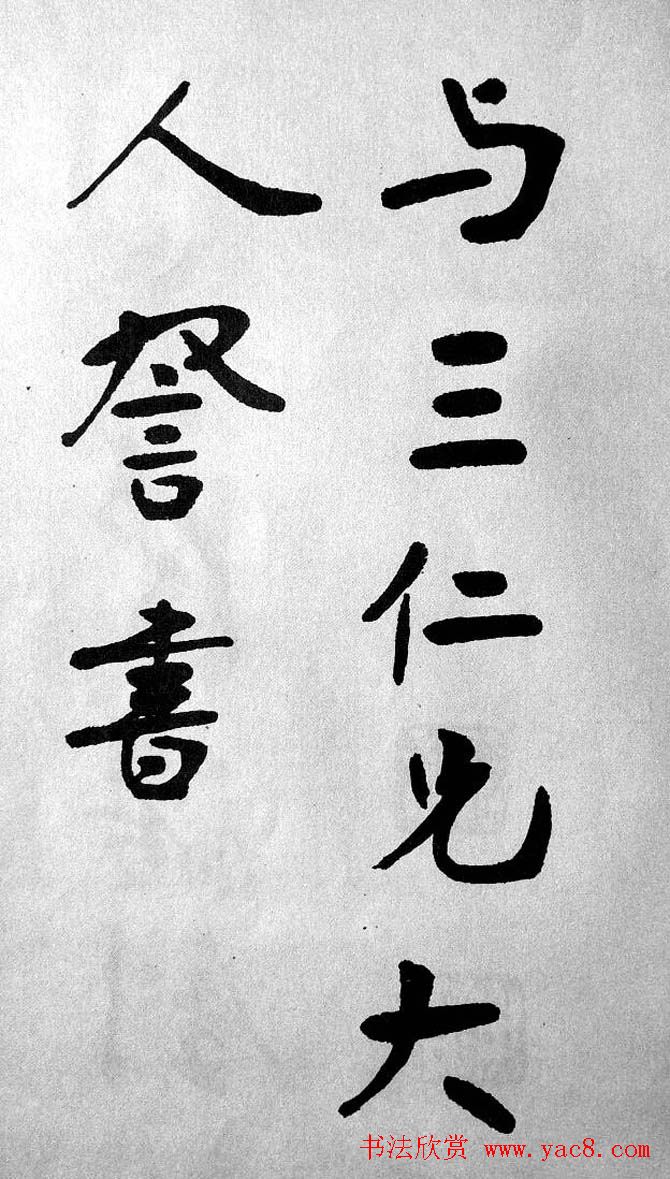 与三仁兄大
人詧書
书法欣赏 www.yac8.com